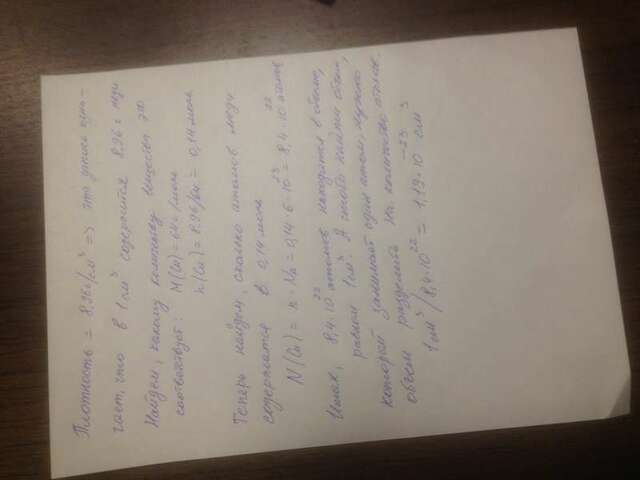 Плотность = 8,96 г/см³ => это значит озна-
чает, что в 1 см³ содержится 8.96 г меди
Найдем, какому количеству вещества это
соответствует: M(Cu) = 64 г/моль
n(Cu) = 8.96/64 = 0,14 моль
Теперь найдем, сколько атомов меди
содержится в 0,14 моль
N(Cu) = n · Na = 0,14 · 6 · 10²³ = 8,4 · 10²² атомов
Итак, 8,4 · 10²² атомов находятся в объеме,
равном 1 см³. Из этого найти объем,
который занимает один атом, нужно
объем разделить на количество атомов.
1 см³ / 8,4 · 10²² = 1,19 · 10⁻²³ см³